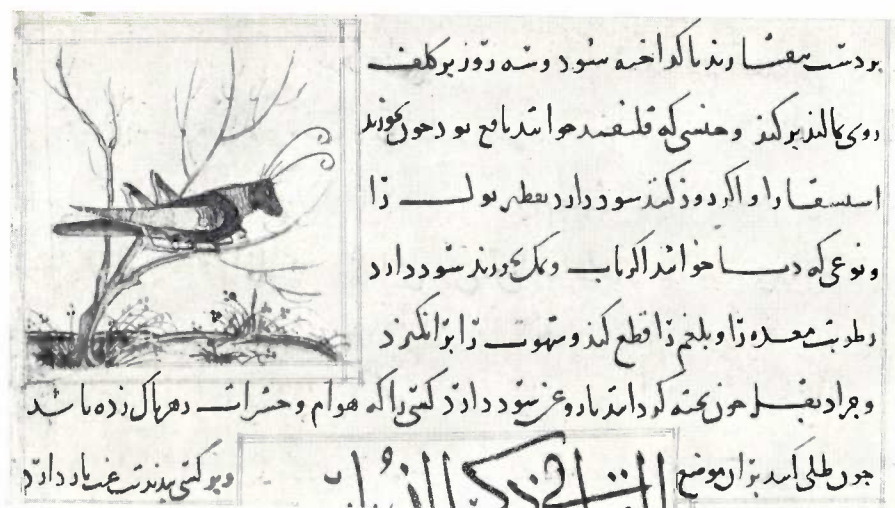 بر دست بیفشارند تا گداخته شود و سه روز بر کلف
روی مالند ببرد کند و جنسی که خوانند نافع بود چون بخورند
استسقا را و اگر دود کنند سود دارد تقطیر بول را
و نوعی که خوانند اگر باب و نمک بخورند سود دارد
رطوبت معده را و بلغم را قطع کند و شهوت را برانگیزد
و جراد چون پخته گردانند با روغن سود دارد کسی را که هوام و حشرات زهرناک زده باشد
چون طلی کنند بر آن موضع
و بر کسی بندند تب غب باز دارد
فی ذکر